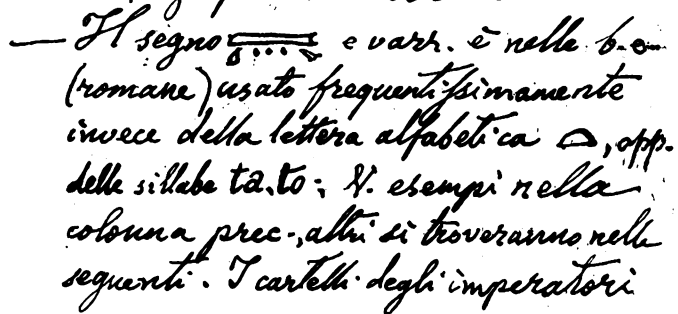 — Il segno 𓇿 e varr. è nelle b. e.
(romane) usato frequentissimamente
invece della lettera alfabetica 𓏏, opp.
delle sillabe ta, to; V. esempi nella
colonna prec., altri si troveranno nelle
seguenti. I cartelli degli imperatori